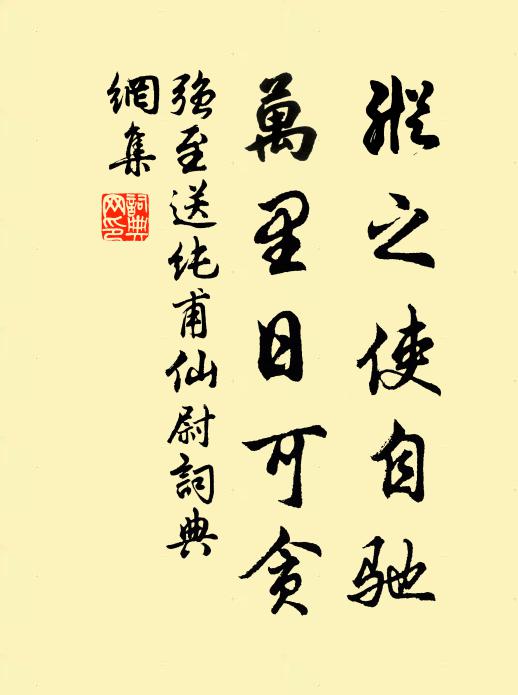 縱之使自馳
萬里日可貪
強至送純甫仙尉詞典
網集
詞典
网印